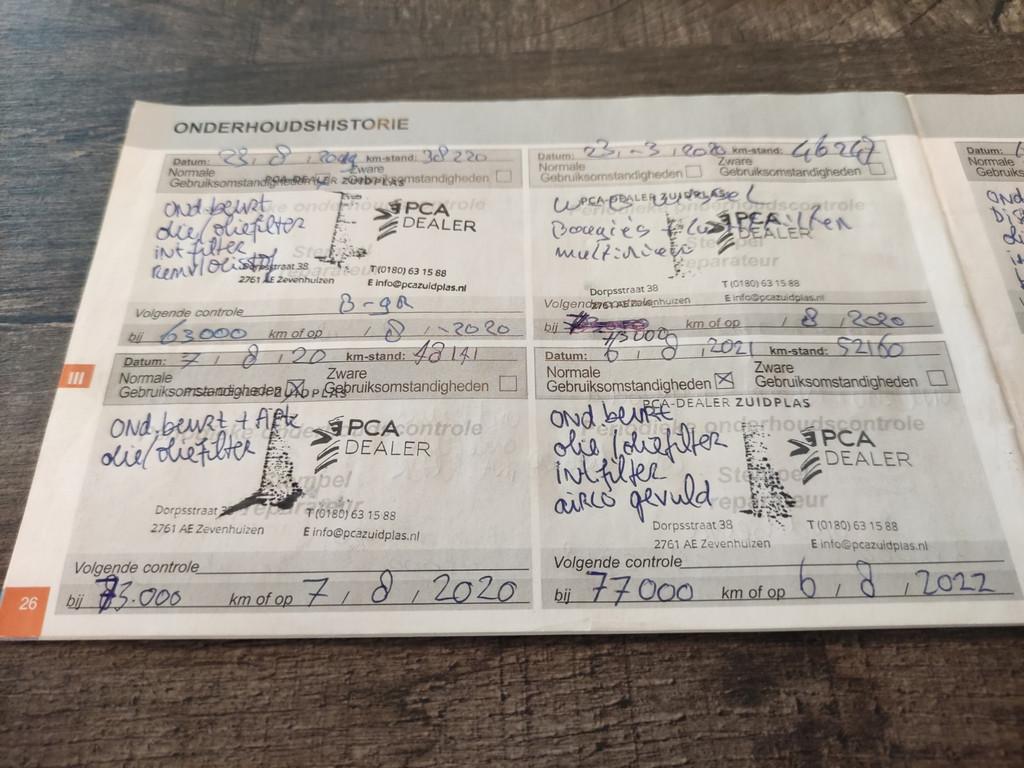 ONDERHOUDSHISTORIE
Datum: 23, 8, 2019 km-stand: 38220
Normale Zware
Gebruiksomstandigheden Gebruiksomstandigheden
PCA-DEALER ZUIDPLAS
ond.beurt
olie/oliefilter
int filter
PCA
DEALER
Dorpsstraat 38 T (0180) 63 15 88
2761 AE Zevenhuizen E info@pcazuidplas.nl
Volgende controle
bij 63000 km of op / 8, -2020
Datum: 23, -3, 2020 km-stand: 46247
Normale Zware
Gebruiksomstandigheden Gebruiksomstandigheden
PCA-DEALER ZUIDPLAS
Periodieke onderhoudscontrole
Bougies + luchtfilter
multiriem
Stempel
reparateur
PCA
DEALER
Dorpsstraat 38 T (0180) 63 15 88
2761 AE Zevenhuizen E info@pcazuidplas.nl
Volgende controle
bij 73000 km of op / 8, 2020
Datum: 7, 8, 20 km-stand: 48141
Normale Zware
Gebruiksomstandigheden Gebruiksomstandigheden
PCA-DEALER ZUIDPLAS
ond.beurt + APK
olie/oliefilter
PCA
DEALER
Dorpsstraat 38 T (0180) 63 15 88
2761 AE Zevenhuizen E info@pcazuidplas.nl
Volgende controle
bij 73.000 km of op 7, 8, 2020
Datum: 6, 8, 2021 km-stand: 52160
Normale Zware
Gebruiksomstandigheden Gebruiksomstandigheden
PCA-DEALER ZUIDPLAS
Periodieke onderhoudscontrole
ond.beurt
olie/oliefilter
int filter
airco gevuld
Stempel
reparateur
PCA
DEALER
Dorpsstraat 38 T (0180) 63 15 88
2761 AE Zevenhuizen E info@pcazuidplas.nl
Volgende controle
bij 77000 km of op 6, 8, 2022
III
26